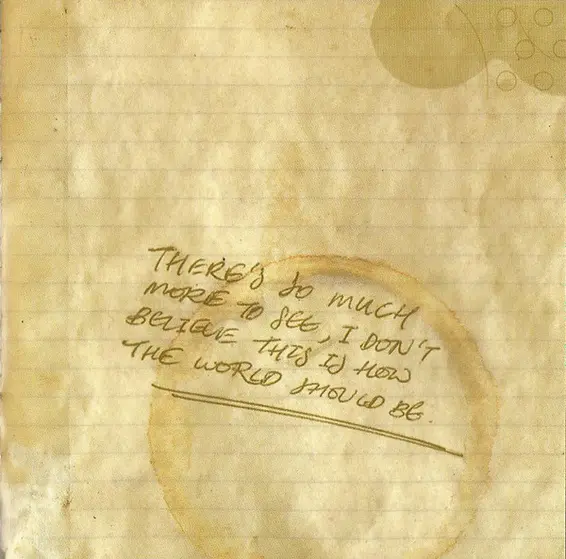 THERE'S SO MUCH
MORE TO SEE, I DON'T
BELIEVE THIS IS HOW
THE WORLD SHOULD BE.